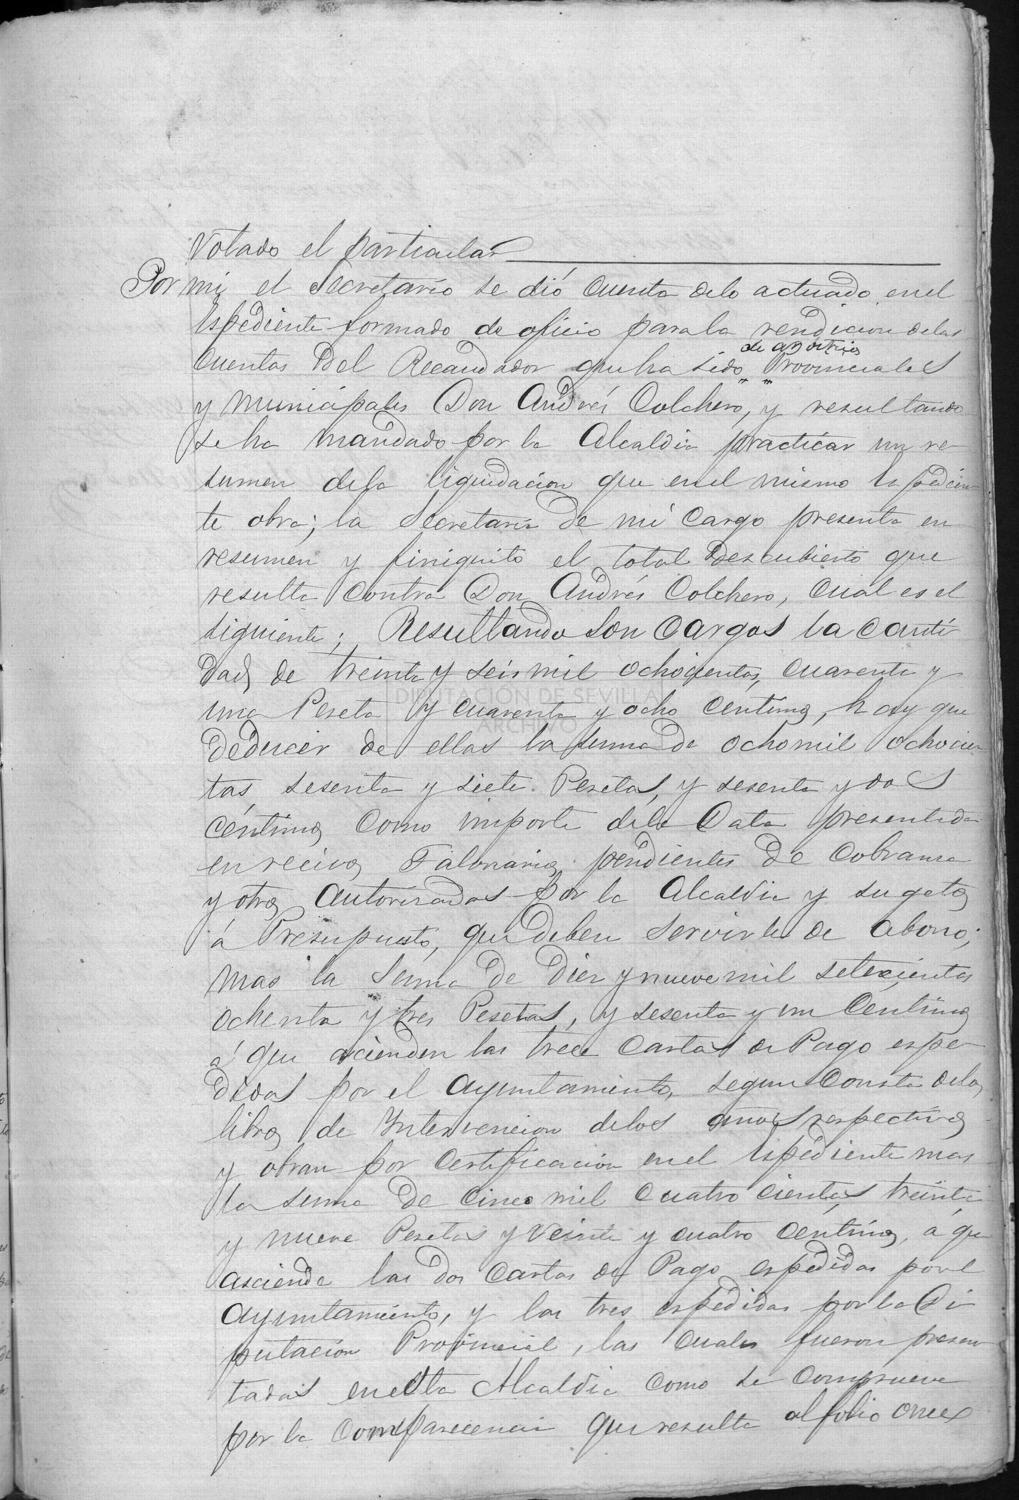 Votado el particular
Por mi el Secretario se dió cuenta delo actuado en el
Espediente formado de oficio para la rendicion delas
de arbitrios
Cuentas del Recaudador que ha sido " " Provinciales
y Municipales Don Andrés Colchero, y resultando
se ha mandado por la Alcaldia practicar un re
sumen dela liquidacion que en el mismo Espedien
te obra; la Secretaria de mi cargo presenta en
resumen y finiquito el total Descubierto que
resulta contra Don Andrés Colchero, cual es el
siguiente; Resultando Son Cargos la canti
dad de treinta y seis mil ochocientas, cuarenta y
DIPUTACIÓN DE SEVILLA
una Peseta y cuarenta y ocho centimos, hay que
ARCHIVO
deducir de ellas la suma de ocho mil ochocien
tas sesenta y siete Pesetas, y sesenta y dos
céntimos como importe dela Data presentada
en recivos Talonarios pendientes de cobranza
y otros autorizados por la Alcaldia y sugetos
á Presupuesto, que deben servirle de abono;
mas la Suma de Diez y nueve mil setecientas
ochenta y tres Pesetas, y sesenta y un Centimos
á que acienden las trece cartas de Pago espe
didas por el Ayuntamiento, segun consta delos
libros de Yntervencion delos años respectivos
y obran por certificacion en el Espediente mas
la suma de cinco mil cuatro cientas treinta
y nueve Pesetas y veinte y cuatro céntimos, a que
asciende las dos cartas de Pago espedidas por el
Ayuntamiento, y las tres espedidas por la Di
putacion Provincial, las cuales fueron presen
tadas en esta Alcaldia como se comprueva
por la comparecencia que resulta al folio once